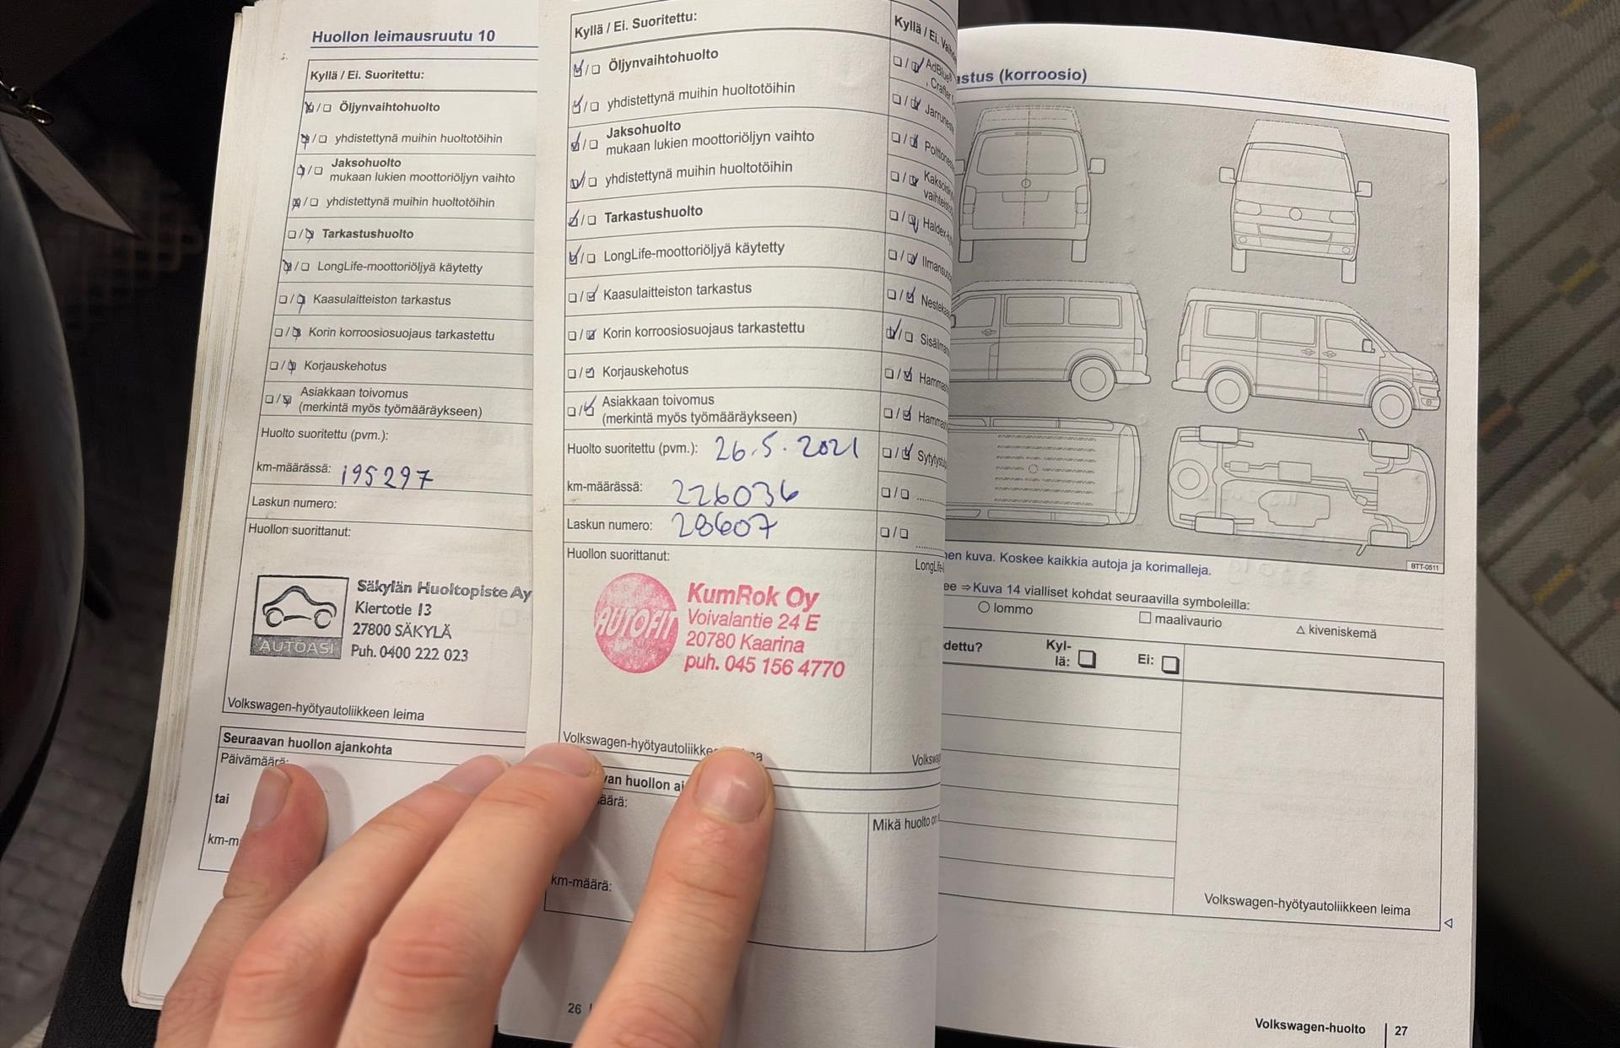 Huollon leimausruutu 10
Kyllä / Ei. Suoritettu:
Öljynvaihtohuolto
yhdistettynä muihin huoltotöihin
Jaksohuolto
mukaan lukien moottoriöljyn vaihto
yhdistettynä muihin huoltotöihin
Tarkastushuolto
LongLife-moottoriöljyä käytetty
Kaasulaitteiston tarkastus
Korin korroosiosuojaus tarkastettu
Korjauskehotus
Asiakkaan toivomus
(merkintä myös työmääräykseen)
Huolto suoritettu (pvm.):
km-määrässä: 195297
Laskun numero:
Huollon suorittanut:
AUTOASI
Säkylän Huoltopiste Ay
Kiertotie 13
27800 SÄKYLÄ
Puh. 0400 222 023
Volkswagen-hyötyautoliikkeen leima
Seuraavan huollon ajankohta
Päivämäärä:
tai
km-m
Kyllä / Ei. Suoritettu:
Öljynvaihtohuolto
yhdistettynä muihin huoltotöihin
Jaksohuolto
mukaan lukien moottoriöljyn vaihto
yhdistettynä muihin huoltotöihin
Tarkastushuolto
LongLife-moottoriöljyä käytetty
Kaasulaitteiston tarkastus
Korin korroosiosuojaus tarkastettu
Korjauskehotus
Asiakkaan toivomus
(merkintä myös työmääräykseen)
Huolto suoritettu (pvm.): 26.5.2021
km-määrässä: 226036
Laskun numero: 28607
Huollon suorittanut:
AUTOFIT
KumRok Oy
Voivalantie 24 E
20780 Kaarina
puh. 045 156 4770
Volkswagen-hyötyautoliikke
van huollon aj
äärä:
km-määrä:
26
Kyllä / Ei. Va
AdBlue
, Crafter
Jarrunes
Polttone
Kaksois
vaihteist
Haldex-
Ilmansu
Nesteka
Sisäilma
Hammas
Hammas
Sytytys
LongLife-
Volkswa
Mikä huolto on
astus (korroosio)
BTT-0511
nen kuva. Koskee kaikkia autoja ja korimalleja.
ee ⇒ Kuva 14 vialliset kohdat seuraavilla symboleilla:
lommo
maalivaurio
kiveniskemä
dettu?
Kyl-
lä:
Ei:
Volkswagen-hyötyautoliikkeen leima
Volkswagen-huolto 27